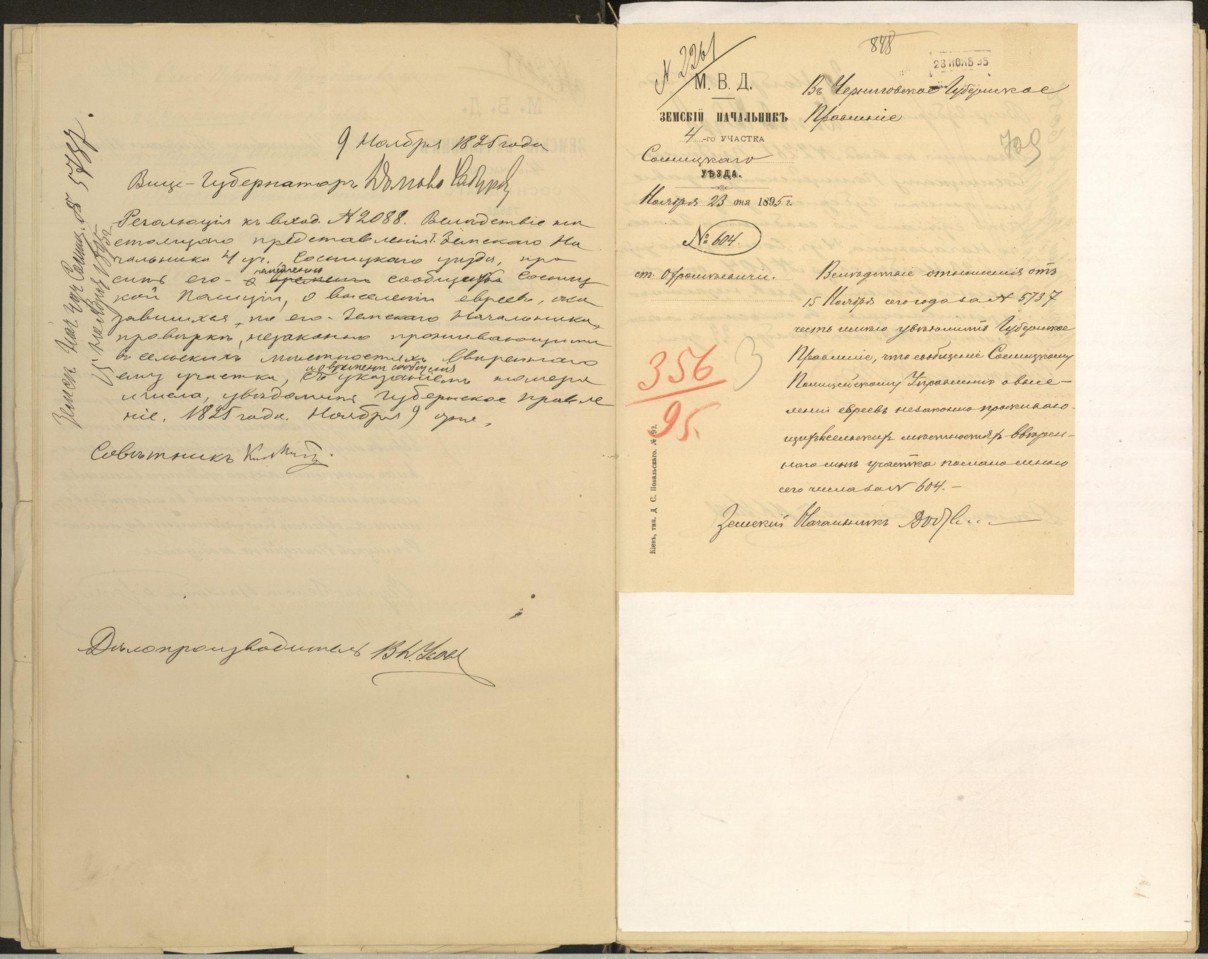 9 Ноября 1895 года
Вице-Губернаторъ
Резолюція къ вход. № 2088. Вслѣдствіе на
стоящаго представленія Г. Земскаго На
чальника 4 уч. Сосницкаго уѣзда, про
сить его о сообщеніи Сосниц
кой Полиціи, о выселеніи евреевъ, ока
завшихся, по его Земскаго Начальника,
провѣркѣ, незаконно проживающими
въ сельскихъ мѣстностяхъ ввѣреннаго
ему участка, о времени сообщенія
съ указаніемъ номера
и числа, увѣдомить Губернское Правле
ніе. 1895 года. Ноября 9 дня.
Совѣтникъ
Дѣлопроизводитель
Земск. Нач. 4 уч. Сосниц. № 5737.
15 Ноября 1895
N 2261
848
23 НОЯБ 95
М. В. Д.
ЗЕМСКІЙ НАЧАЛЬНИКЪ
4-го УЧАСТКА
Сосницкаго
УѢЗДА.
Ноября 23 дня 1895 г.
№ 604
Въ Черниговское Губернское
Правленіе
709
356
95.
Вслѣдствіе отношенія отъ
15 Ноября сего года за № 5737
честь имѣю увѣдомить Губернское
Правленіе, что сообщеніе Сосницкому
Полицейскому Управленію о высе-
леніи евреевъ незаконно прожива-
ющихъ въ сельскихъ мѣстностяхъ ввѣрен-
наго мнѣ участка послано мною
сего числа за № 604.-
Земскій Начальникъ
Кіевъ, тип. Д. С. Повальскаго.